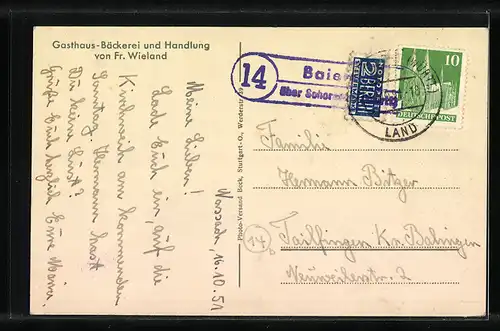 Gasthaus-Bäckerei und Handlung
von Fr. Wieland
Wassach 16.10.51
Meine Lieben!
Lade Euch ein, auf die
Kirchweih am kommenden
Sonntag. Hermann hast
Du keine Lust?
Grüße Euch herzlich Eure
Photo-Versand Bock, Stuttgart-O., Werderstr.
14
Baie
über Schorn
NOTOPFER
2 BERLIN
STEUERMARKE
10
DEUTSCHE POST
LAND
Familie
Hermann Bitzer
14b
Tailfingen Kr. Balingen
Neuweilerstr. 2